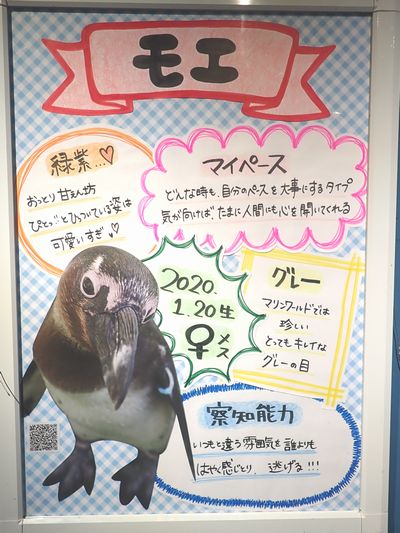 モエ
緑紫…♡
おっとり甘えん坊
ぴとっ♡とひっついている姿は
可愛いすぎ♡
マイペース
どんな時も、自分のペースを大事にするタイプ
気が向けばたまに人間にも心を開いてくれる
2020.
1.20生
♀メス
グレー
マリンワールドでは
珍しい
とってもキレイな
グレーの目
察知能力
いつもと違う雰囲気を誰よりも
はやく感じとり、逃げる!!!